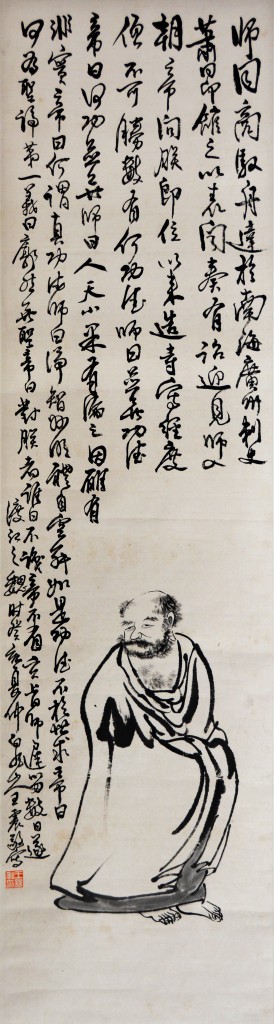 師同商駁舟達於南海廣州刺史
蕭昂館之以表聞奏有詔迎見師入
朝帝問朕即位以來造寺寫經度
僧不可勝數有何功德師曰並無功德
帝曰何無師曰人天小果有漏之因雖有
非實帝曰何謂真功德師曰淨智妙明體自空寂如是功德不於世求帝曰
何為聖諦第一義曰廓然無聖帝曰對朕者誰曰不識帝不省玄旨師留數日遂
渡江之魏時癸亥夏仲白龍山人王震敬寫